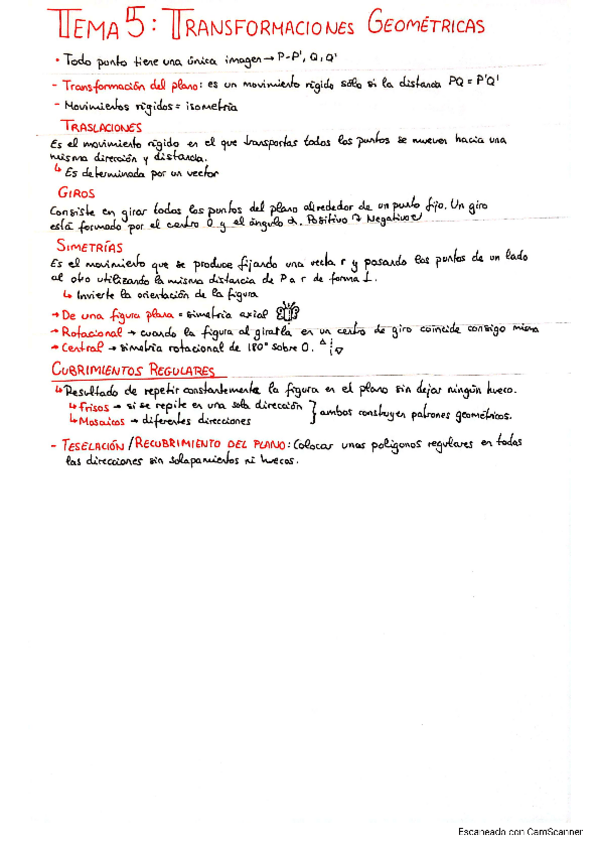 TEMA 5: TRANSFORMACIONES GEOMÉTRICAS
• Todo punto tiene una única imagen → P-P', Q, Q'
- Transformación del plano: es un movimiento rígido sólo si la distancia PQ = P'Q'
- Movimientos rígidos = isometría
TRASLACIONES
Es el movimiento rígido en el que transportas todos los puntos se mueven hacia una
misma dirección y distancia.
↳ Es determinada por un vector
GIROS
Consiste en girar todos los puntos del plano alrededor de un punto fijo. Un giro
está formado por el centro O y el ángulo α. Positivo Negativo
SIMETRÍAS
Es el movimiento que se produce fijando una recta r y pasando los puntos de un lado
al otro utilizando la misma distancia de P a r de forma ⊥.
↳ Invierte la orientación de la figura
→ De una figura plana = simetría axial
→ Rotacional → cuando la figura al girarla en un centro de giro coincide consigo misma
→ Central → simetría rotacional de 180° sobre O.
CUBRIMIENTOS REGULARES
↳ Resultado de repetir constantemente la figura en el plano sin dejar ningún hueco.
↳ Frisos → si se repite en una sola dirección } ambos construyen patrones geométricos.
↳ Mosaicos → diferentes direcciones
- TESELACIÓN / RECUBRIMIENTO DEL PLANO: Colocar unos polígonos regulares en todas
las direcciones sin solapamientos ni huecos.
Escaneado con CamScanner